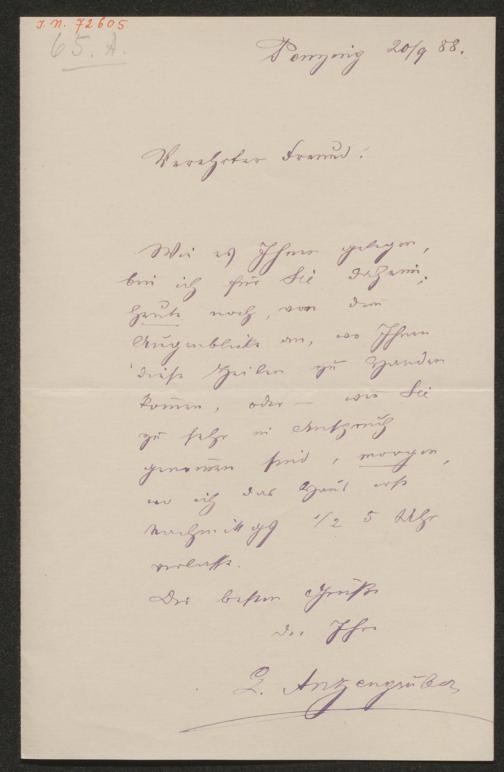 J. N. 72605
65. A.
Penzing 20/9 88.
Verehrter Freund!
Wie es Ihnen gelegen,
bin ich für Sie daheim;
heute noch, von dem
Augenblicke an, wo Ihnen
diese Zeilen zu Handen
kommen, oder – wo Sie
zu sehr in Anspruch
genommen sind, morgen,
wo ich das Haus erst
Nachmittgs 1/2 5 Uhr
verlasse.
Die besten Grüße
der Ihre
L. Anzengruber